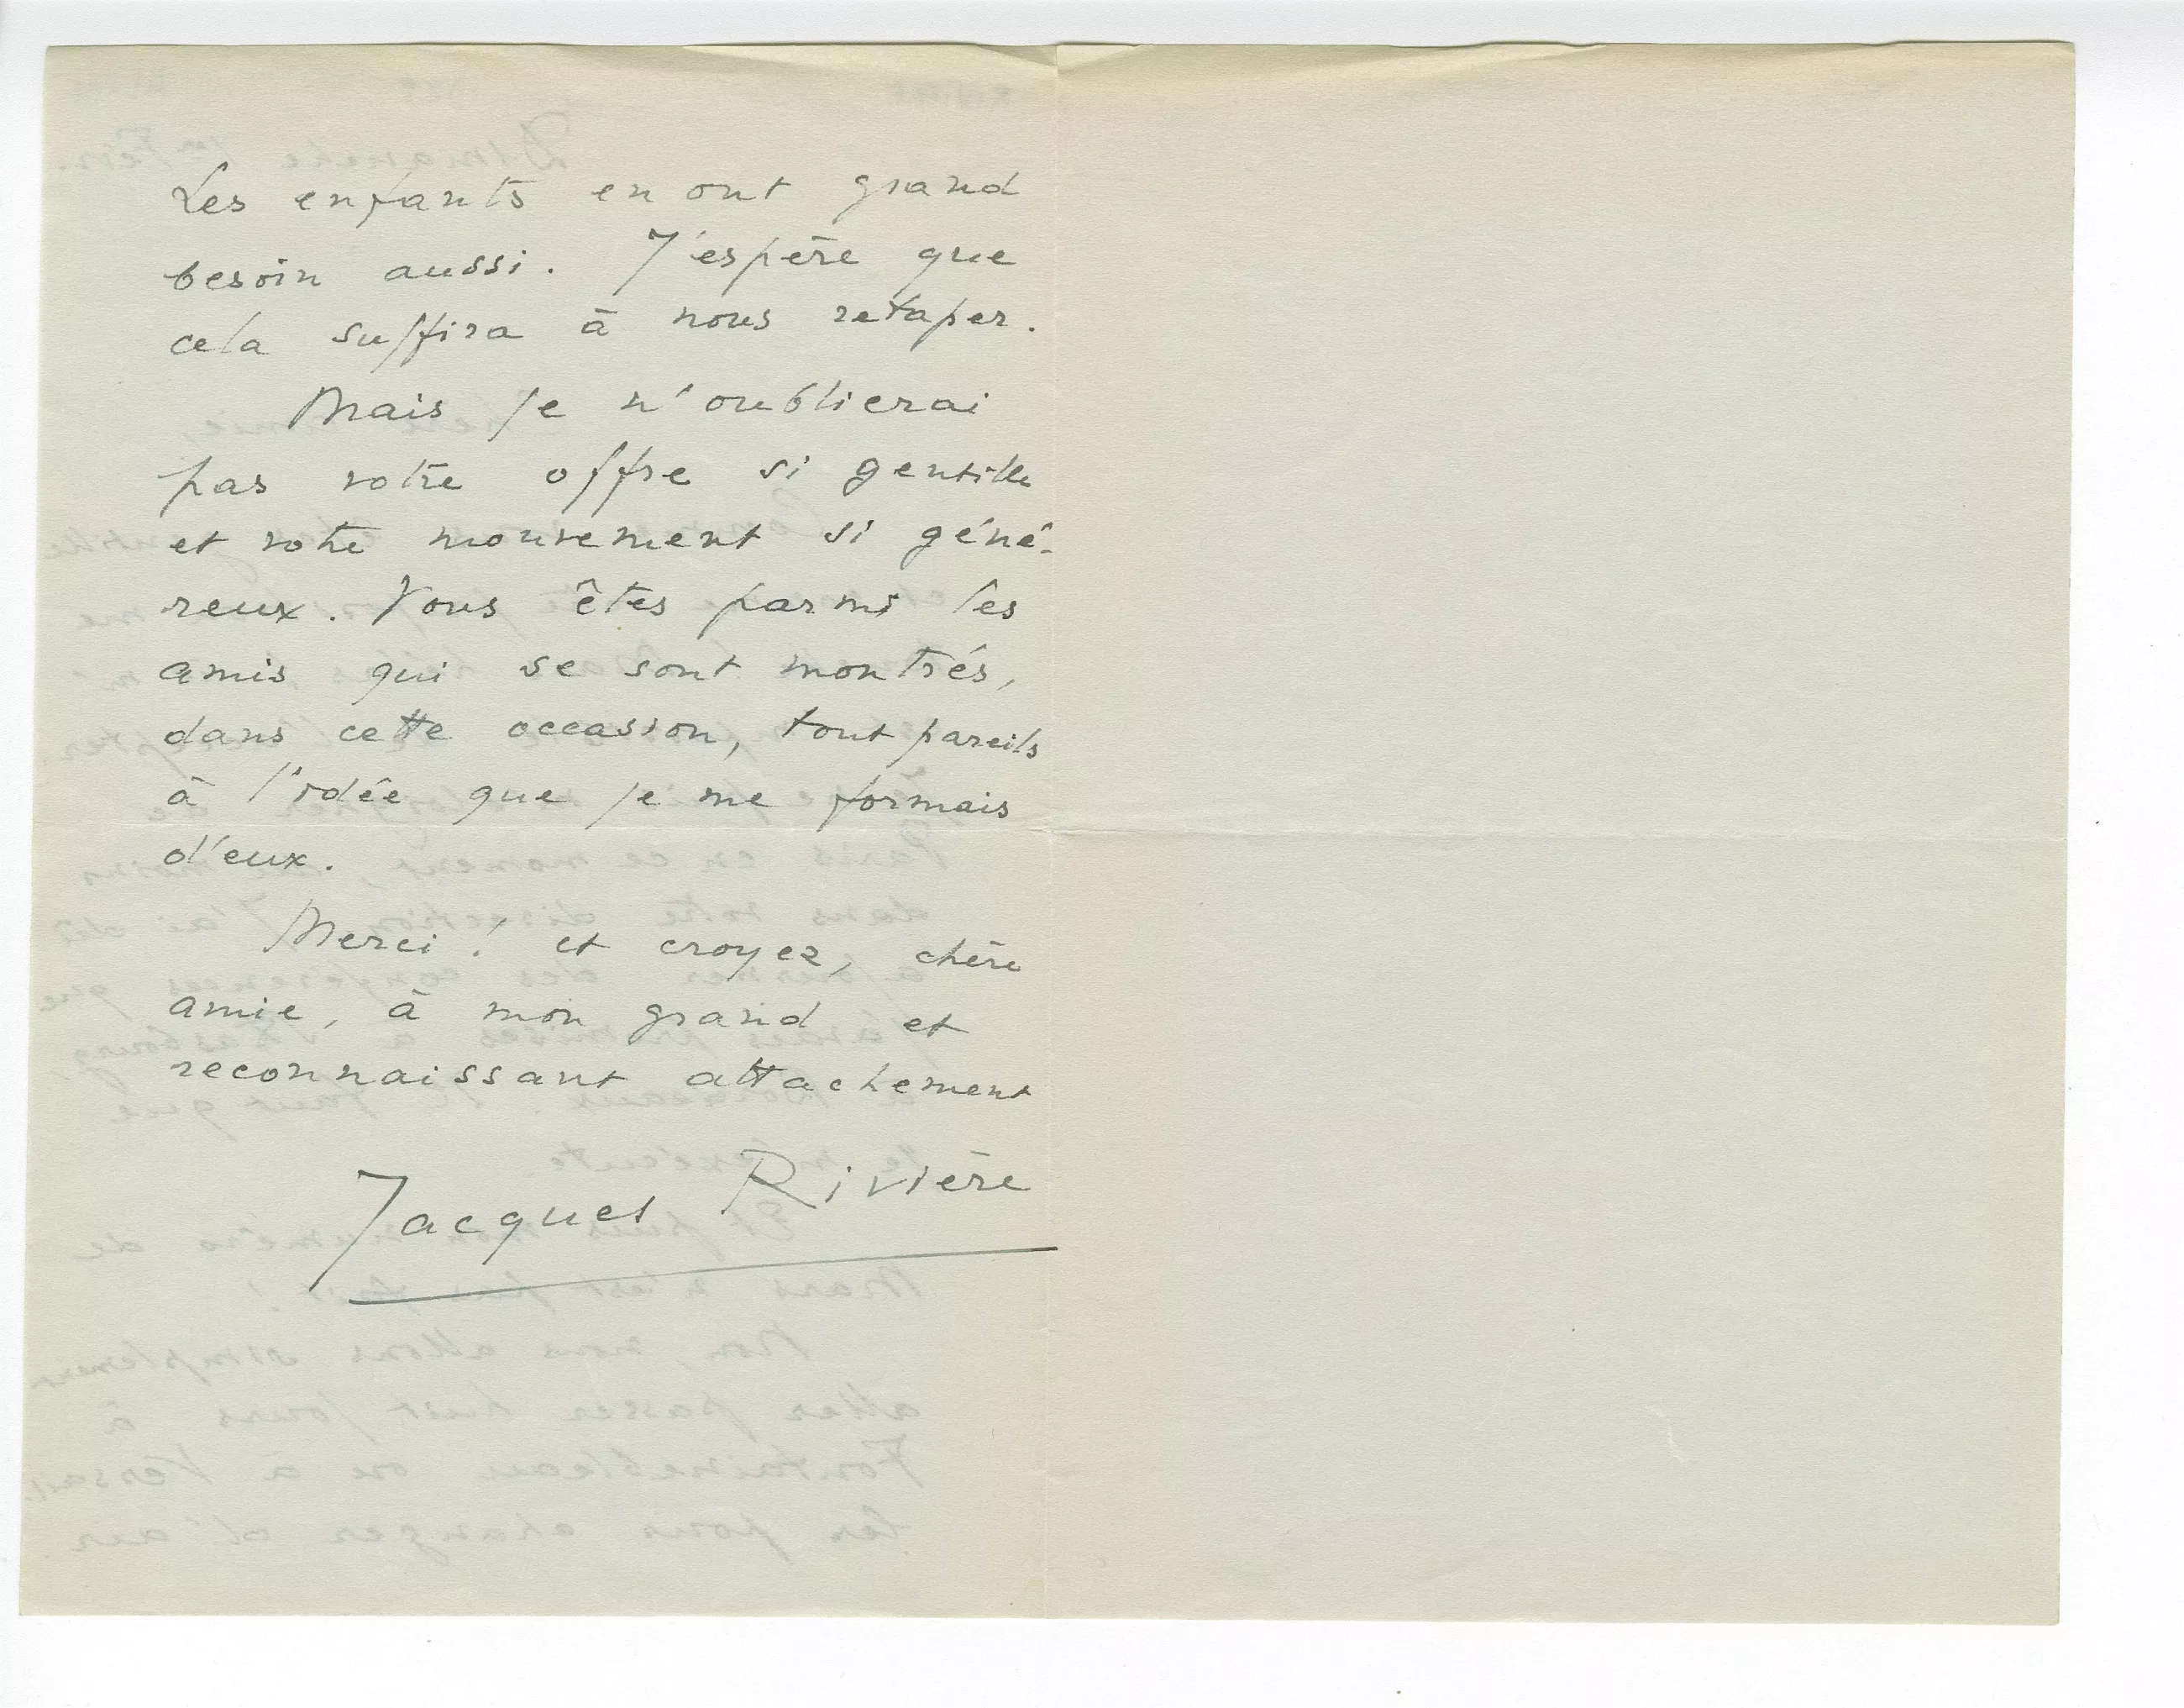 Les enfants en ont grand
besoin aussi. J'espère que
cela suffira à nous retaper.
Mais je n'oublierai
pas votre offre si gentille
et votre mouvement si géné-
reux. Vous êtes parmi les
amis qui se sont montrés,
dans cette occasion, tout pareils
à l'idée que je me formais
d'eux.
Merci ! et croyez, chère
amie, à mon grand et
reconnaissant attachement
Jacques Rivière